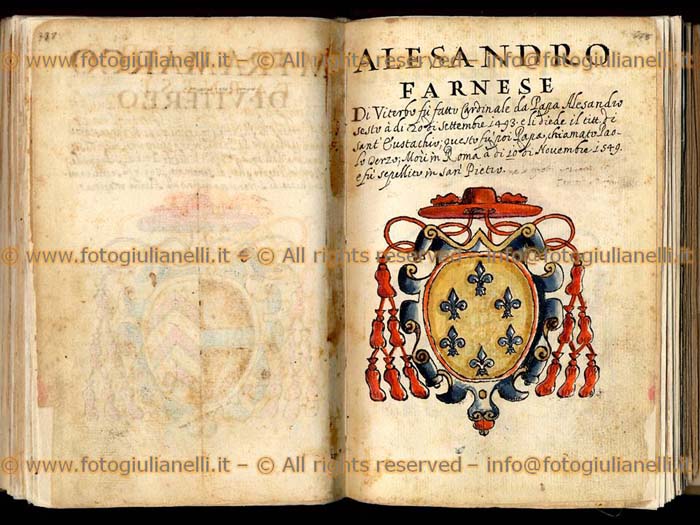 ALESANDRO
FARNESE
Di Viterbo fù fatto Cardinale da Papa Alesandro
sesto à di 20 di Settembre 1493. e li diede il titt. di
Sant' Eustachio; questo fù poi Papa, chiamato Pao-
lo Terzo; Morì in Roma à di 10 di Novembre 1549.
e fù sepellito in san Pietro.
© www.fotogiulianelli.it – © All rights reserved – info@fotogiulianelli.it
© www.fotogiulianelli.it – © All rights reserved – info@fotogiulianelli.it
© www.fotogiulianelli.it – © All rights reserved – info@fotogiulianelli.it